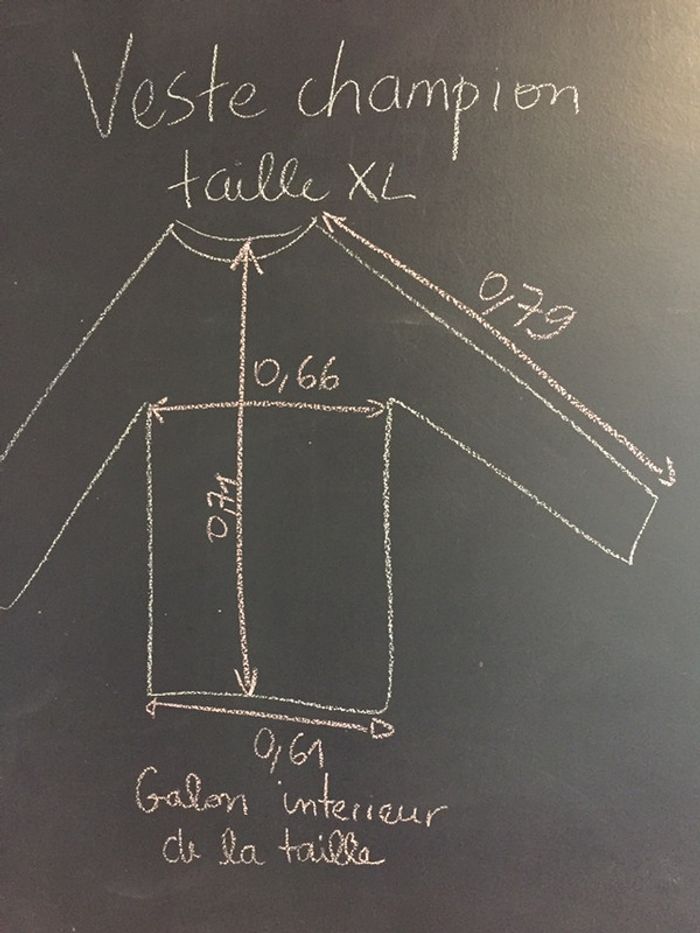 Veste champion
taille XL
0,79
0,66
0,71
0,61
Galon interieur
de la taille